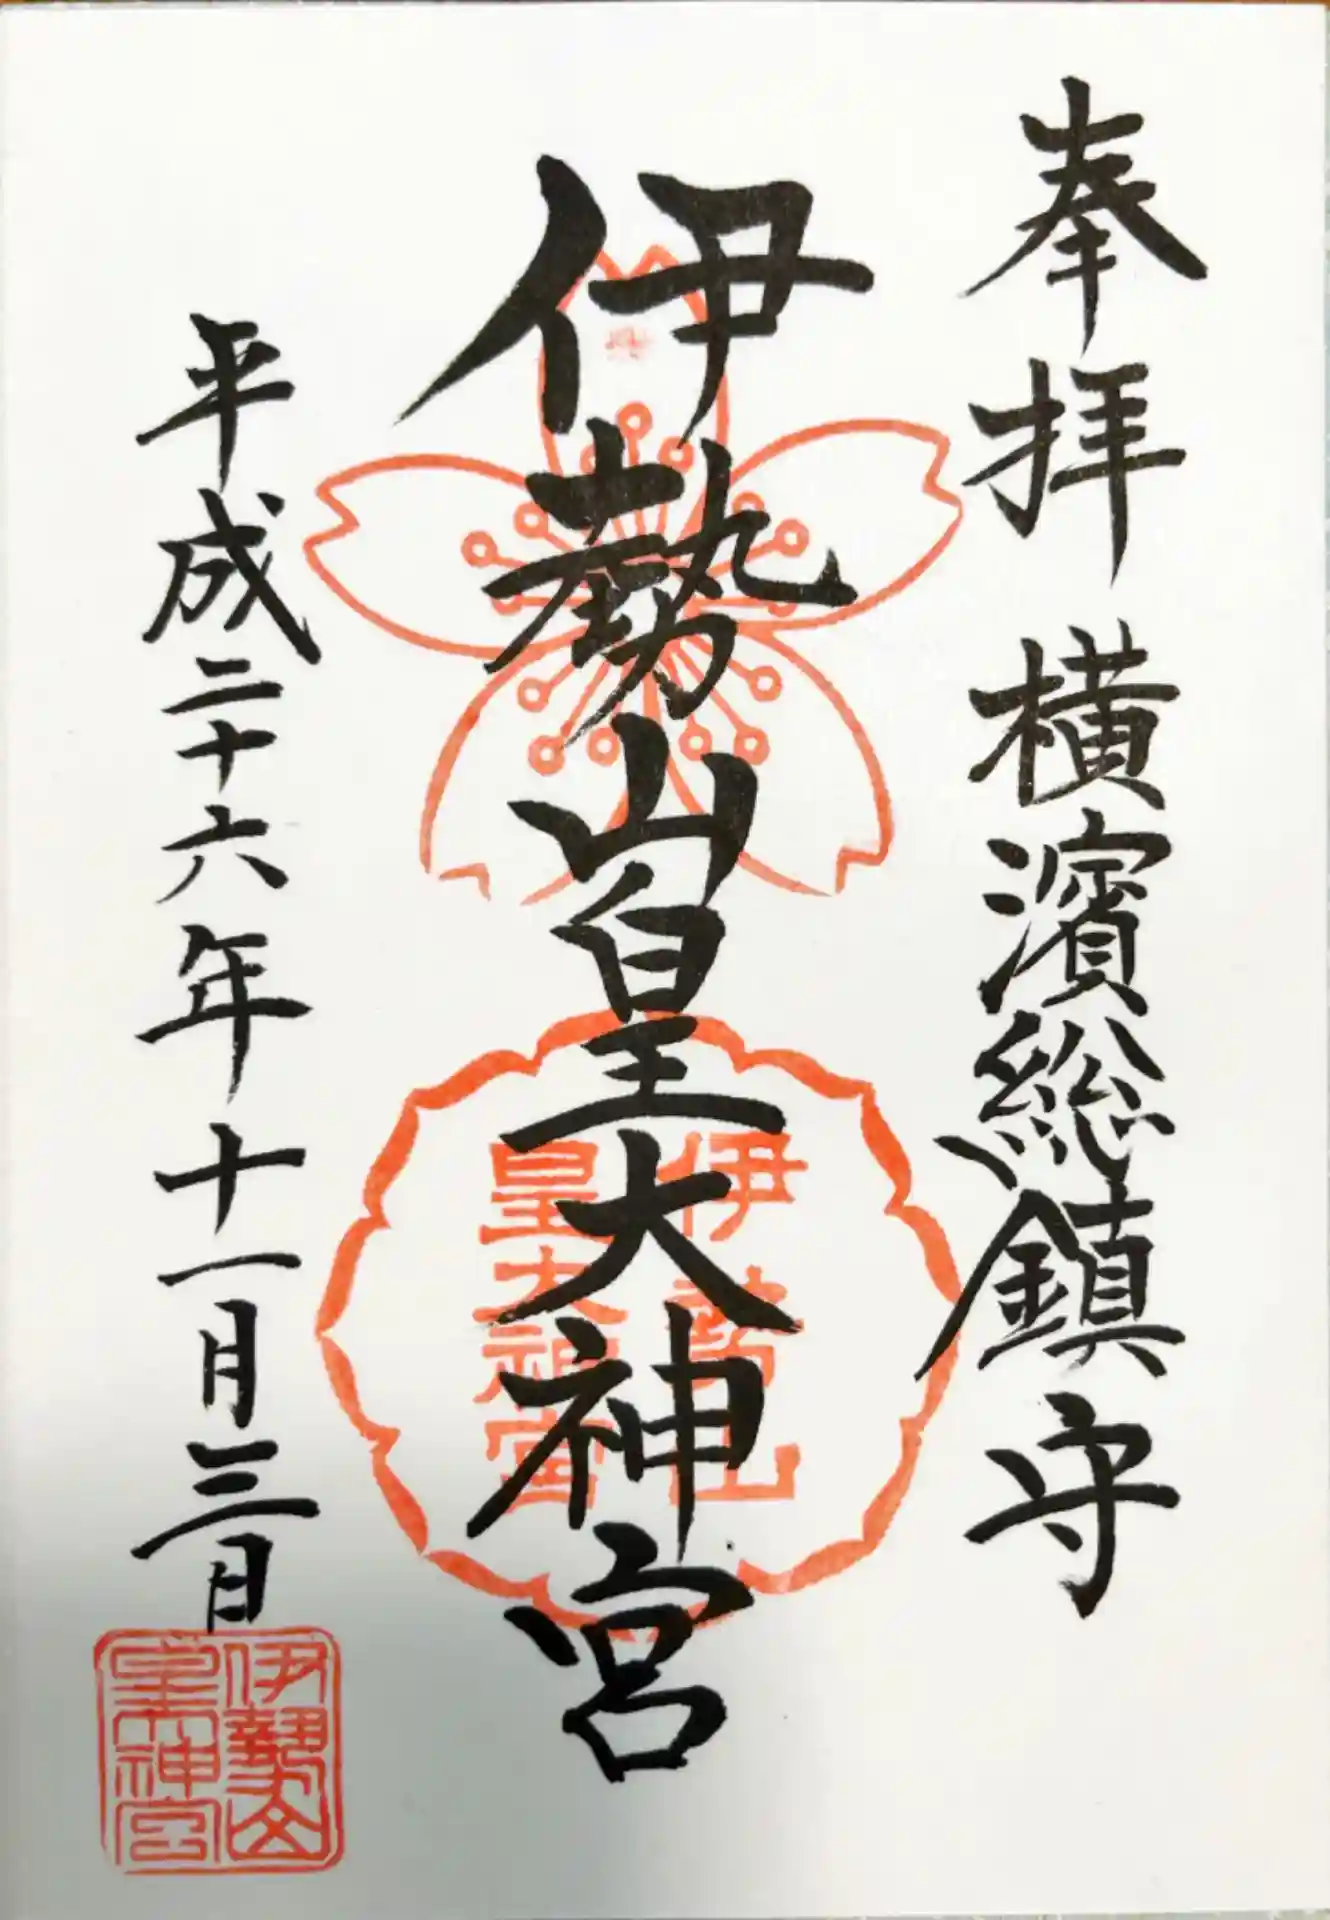 奉拝 横濱総鎮守
伊勢山皇大神宮
伊勢山
皇大神宮
平成二十六年十一月三日
伊勢山
皇大神宮